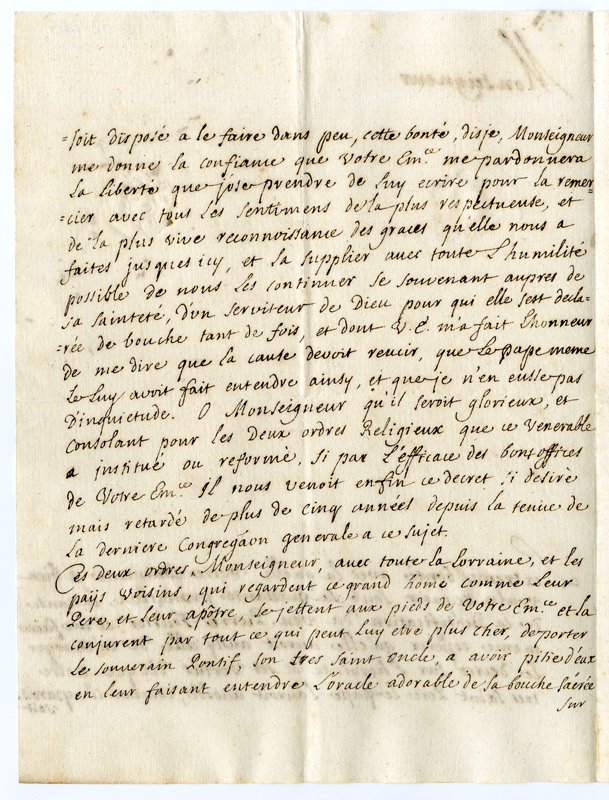 =soit disposé a le faire dans peu, cette bonté, disje, Monseigneur
me donne la confiance que Votre Em.ce me pardonnera
la liberté que j'ose prendre de luy ecrire pour la remer=
=cier avec tous les sentimens de la plus respectueuse, et
de la plus vive reconnoissance des graces qu'elle nous a
faites jusques icy, et la supplier avec toute l'humilité
possible de nous les continuer se souvenant aupres de
sa sainteté, d'un serviteur de Dieu pour qui elle sest decla=
=rée de bouche tant de fois, et dont V. E. m'a fait lhonneur
de me dire que la cause devoit reucir, que le pape meme
le luy avoit fait entendre ainsy, et que je n'en eusse pas
D'inquietude. O Monseigneur qu'il seroit glorieux, et
consolant pour les deux ordres Religieux que ce venerable
a institué ou reformé, si par l'efficace des bons offices
de Votre Em.ce Il nous venoit enfin ce decret si desiré
mais retardé de plus de cinq années depuis la tenue de
la derniere Congregãon generale a ce sujet.
Ces deux ordres, Monseigneur, avec toute la lorraine, et les
païs voisins, qui regardent ce grand home comme leur
Pere, et leur apôtre, se jettent aux pieds de Votre Em.ce et la
conjurent par tout ce qui peut luy etre plus cher, de porter
le souverain Pontif, son tres saint oncle, a avoir pitié d'eux
en leur faisant entendre l'oracle adorable de sa bouche sacrée
sur
Monseigneur